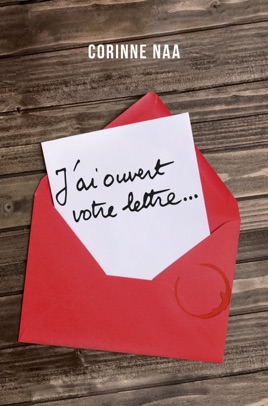 CORINNE NAA
J'ai ouvert
votre lettre...